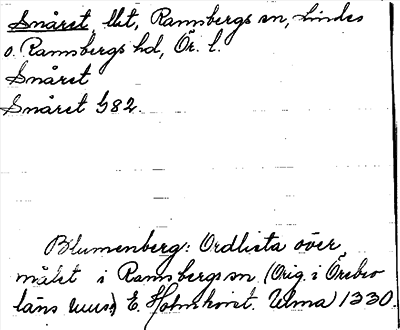 Snåret, Ut, Ramsbergs sn, Lindes
o. Ramsbergs hd, Ör. l.
Snåret
Snåret S82.
Blumenberg: Ordlista över
målet i Ramsbergs sn (Orig. i Örebro
läns mus) E. Holmkvist. Ulma 1330.